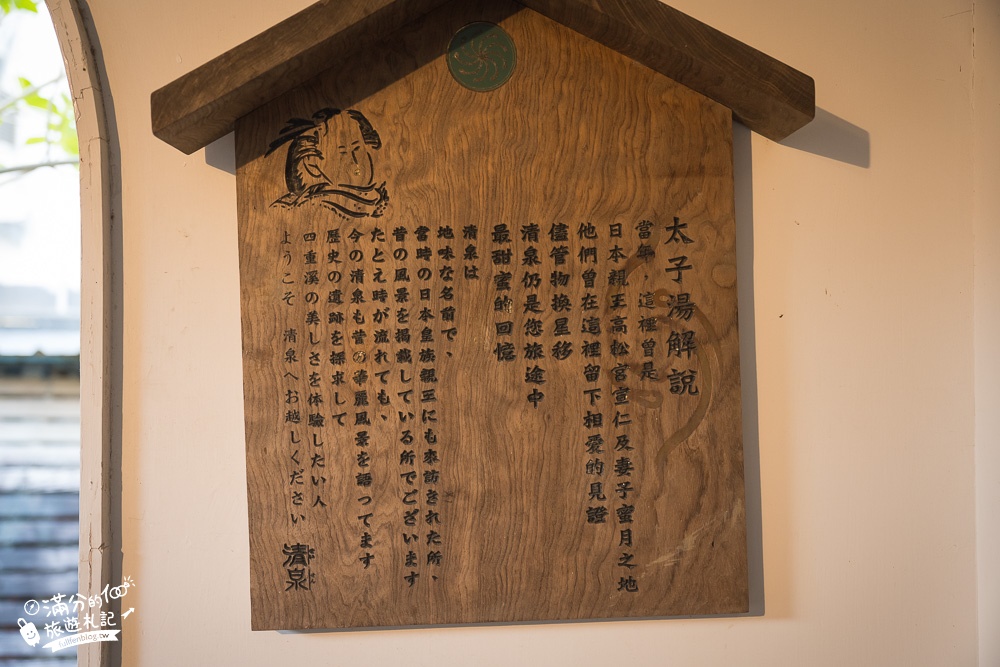 太子湯解說
當年，這裡曾是
日本親王高松宮宣仁及妻子蜜月之地
他們曾在這裡留下相愛的見證
儘管物換星移
清泉仍是您旅途中
最甜蜜的回憶
清泉は
地味な名前で、
當時の日本皇族親王にも來訪された所、
昔の風景を掲載している所でございます
たとえ時が流れても、
今の清泉も昔の華麗風景を語ってます
歷史の遺跡を探求して
四重溪の美しさを体驗したい人
ようこそ 清泉へお越しください
清泉
滿分的
旅遊札記
fullfenblog.tw